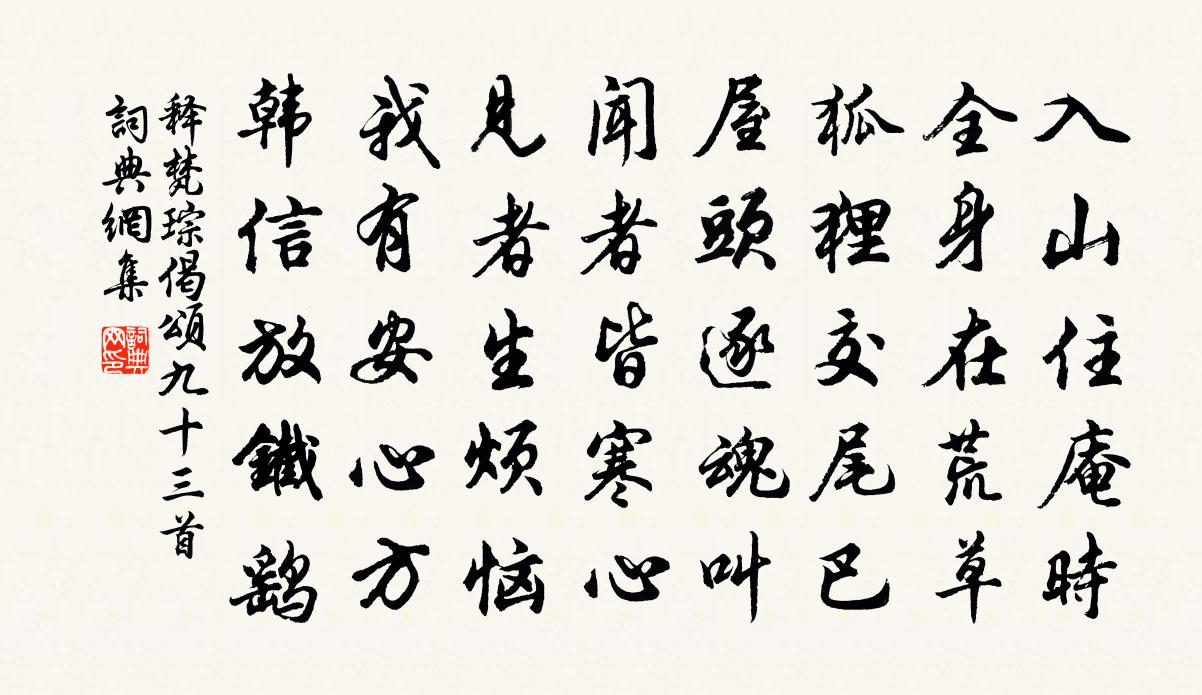 入山住庵時
全身在荒草
狐狸交尾巴
屋頭逐魂叫
闻者皆寒心
見者生烦恼
我有安心方
韩信放鐵鷂
释梵琮偈頌九十三首
詞典網集
詞典网印